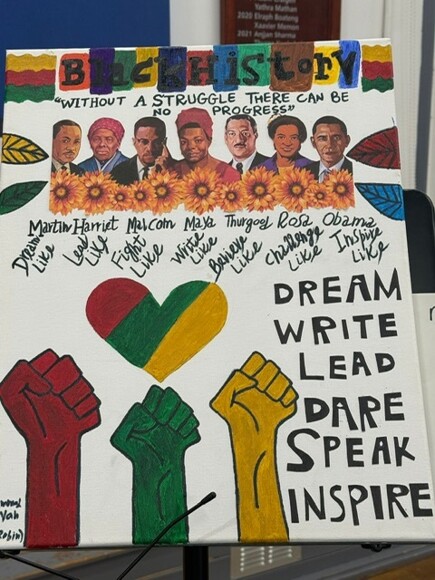 Yathra Mathan
2020 Elraph Boateng
Xaavier Memon
2021 Anjan Sharma
Black History
"WITHOUT A STRUGGLE THERE CAN BE
NO PROGRESS"
Martin Harriet Malcom Maya Thurgood Rosa Obama
Dream Like Lead Like Fight Like Write Like Believe Like Challenge Like Inspire Like
DREAM
WRITE
LEAD
DARE
SPEAK
INSPIRE